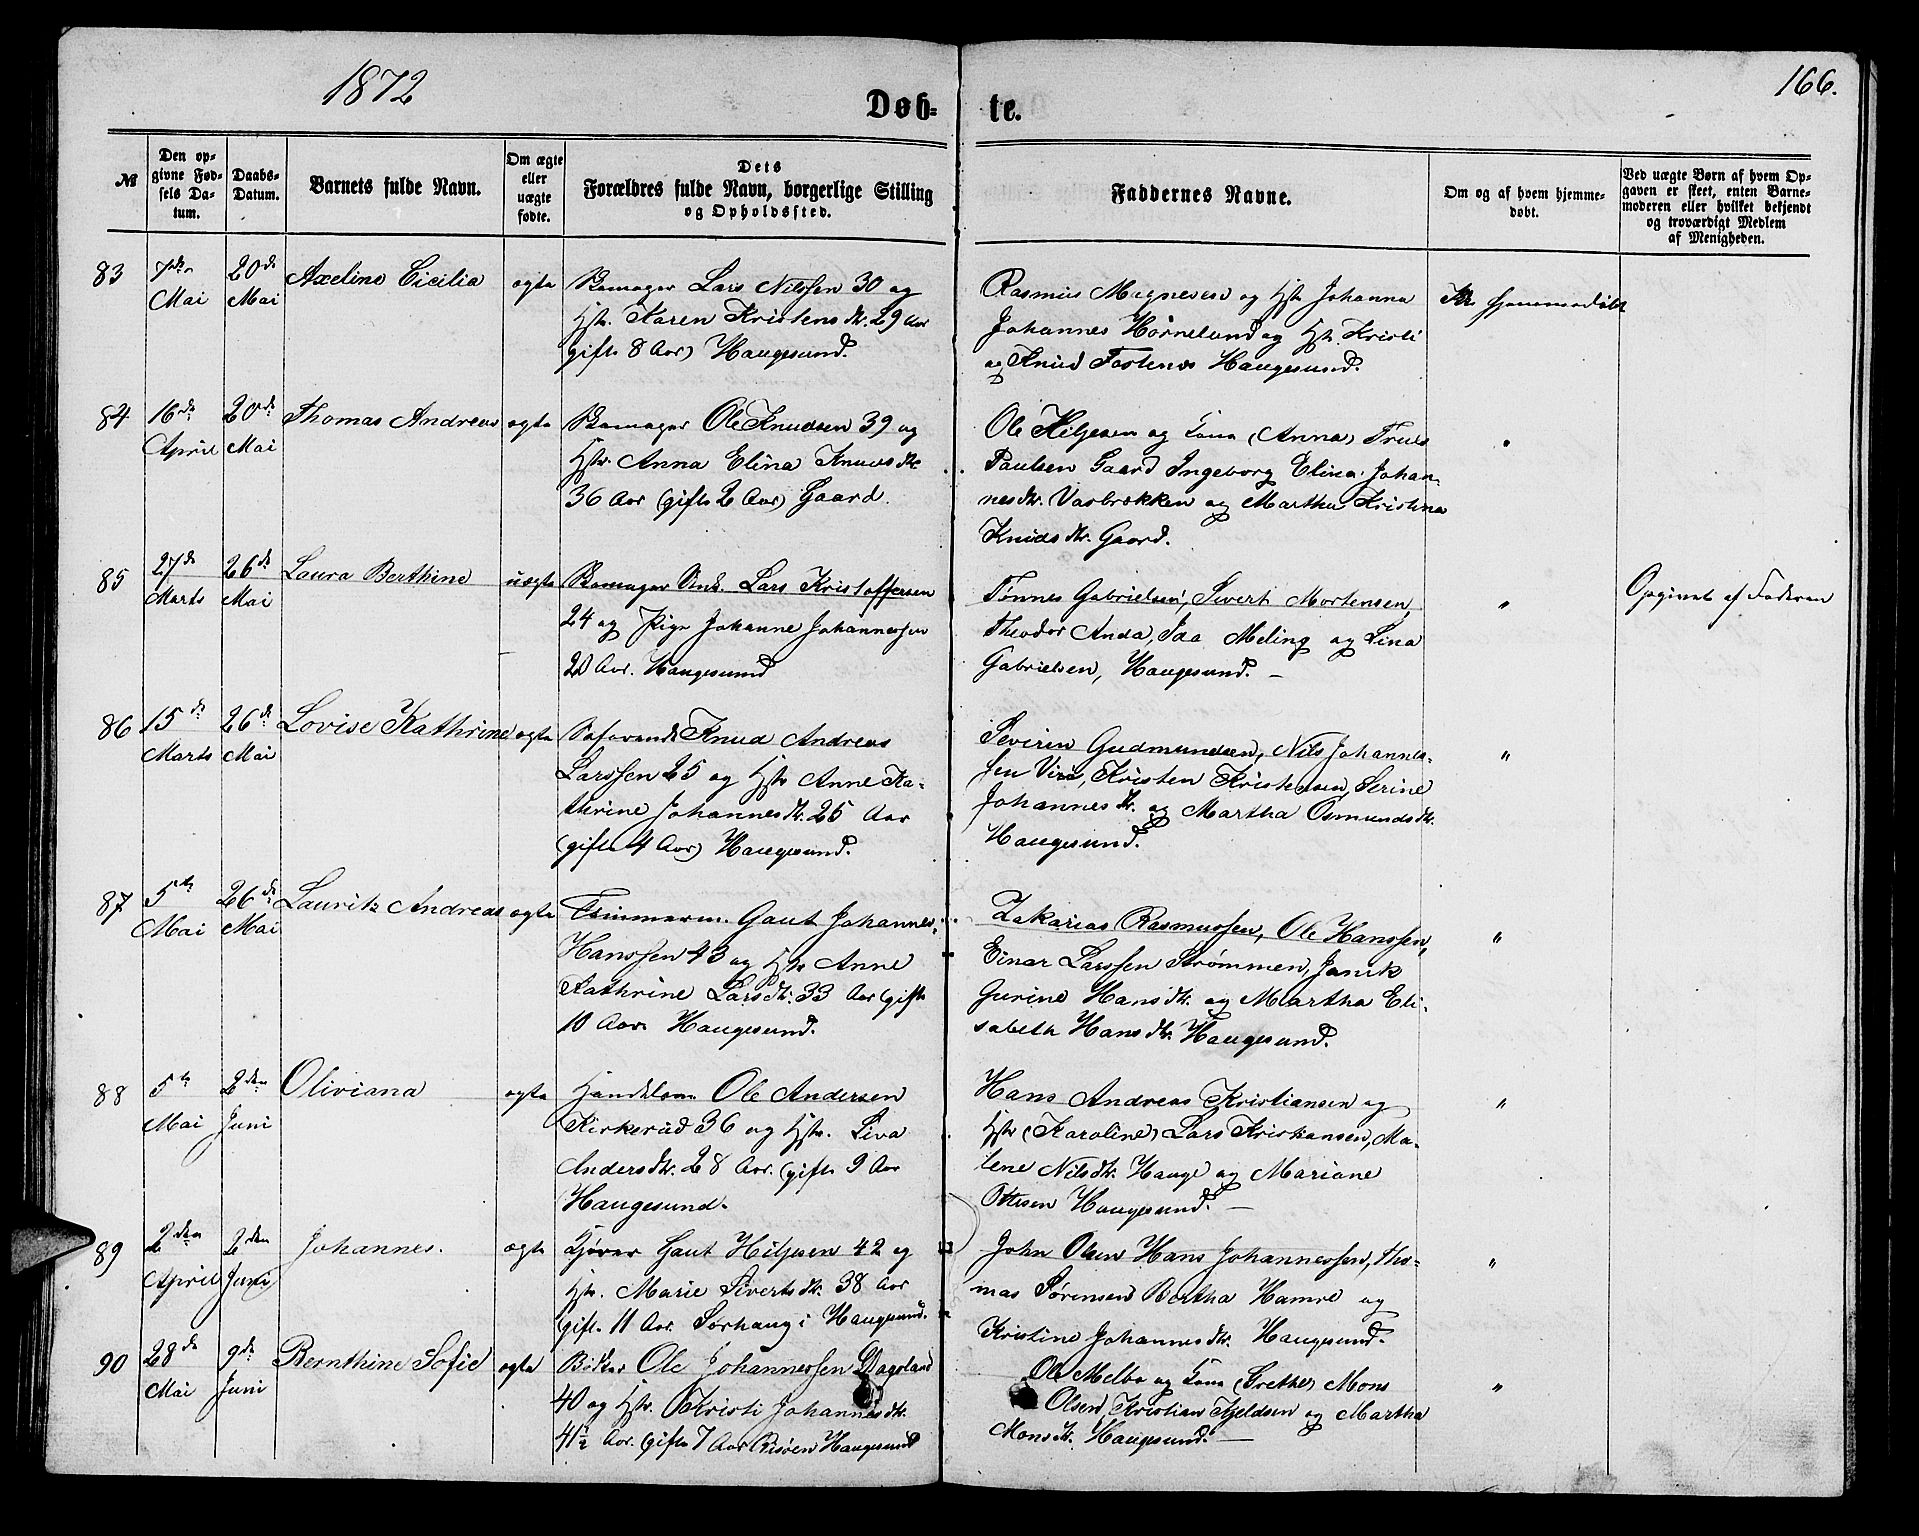 1872
Døb-
te.
166.
№
Den op-
givne Fød-
sels Da-
tum.
Daabs-
Datum.
Barnets fulde Navn.
Om ægte
eller
uægte
fødte.
Dets
Forældres fulde Navn, borgerlige Stilling
og Opholdssted.
Faddernes Navne.
Om og af hvem hjemme-
døbt.
Ved uægte Børn af hvem Op-
gaven er skeet, enten Barne-
moderen eller hvilket bekjendt
og troværdigt Medlem
af Menigheden.
83
7de
Mai
20de
Mai
Axeline Cicilia
ægte
Lars Nilssen 30 og
Hstr. Karen Kristensdtr. 29 Aar
gifte 8 Aar) Haugesund.
Rasmus Magnesen og Hstr Johanna
Johannes Hornelund og Hstr. Kristi
og Knud Haugesund.
hjemmedøbt
84
16de
April
20de
Mai
Thomas Andreas
ægte
Ole Knudsen 39 og
Hstr. Anna Elina Knudsdtr
36 Aar (gifte 2 Aar) Gaard.
Ole Hiljesen og Kona (Anna)
Paulsen Gaard Ingeborg Elina Johan-
nesdtr. Vasbrekken og Martha Kristina
Knudsdtr. Gaard.
"
85
27de
Marts
26de
Mai
Laura Berthine
uægte
Lars Kristoffersen
24 og Pige Johanne Johannessen
20 Aar. Haugesund
Tønnes Gabrielsen, Sivert Mortensen,
Theodor Anda, Ida Meling og Lina
Gabrielsen, Haugesund. –
"
Opgivet af Faderen
86
15de
Marts
26de
Mai
Lovise Kathrine
ægte
Søfarende Knud Andreas
Larssen 25 og Hstr Anne Ka-
thrine Johannesdtr. 25 Aar
(gifte 4 Aar) Haugesund.
Severin Gudmundsen, Nils Johannes-
sen Kristen Kristensen, Serine
Johannesdtr. og Martha Osmundsdtr.
Haugesund.
"
87
5te
Mai
26de
Mai
Lauritz Andreas
ægte
Timmerm. Gaut Johannes
Hanssen 43 og Hstr Anne
Kathrine Larsdtr. 33 Aar (gifte
10 Aar Haugesund.
Zakarias Rasmussen, Ole Hanssen,
Einar Larssen Strømmen,
Gurine Hansdtr. og Martha Eli-
sabeth Hansdtr. Haugesund.
"
88
5te
Mai
2den
Juni
Oliviana
ægte
Handelsm. Ole Andersen
Kirkerud 36 og Hstr. Liva
Andersdtr. 28 Aar. (gifte 9 Aar
Haugesund.
Hans Andreas Kristiansen og
Hstr (Karoline) Lars Kristiansen, Ma-
lene Nilsdtr. Hauge og Mariane
Ottesen Haugesund. –
"
89
2den
April
2den
Juni
Johannes.
ægte
Gaut Hiljesen 42 og
Hstr. Marie Sivertsdtr. 38 Aar
gifte 11 Aar. Sørhaug i Haugesund.
John Olsen Hans Johannessen, Tho-
mas Sørensen Bertha Hamre og
Kristine Johannesdtr. Haugesund.
"
90
28de
Mai
9de
Juni
Bernthine Sofie
ægte
Bøkker Ole Johannessen Dagsland
40 og Hstr. Kristi Johannesdtr.
41½ Aar. (gifte 7 Aar Risøen Haugesund
Ole Melbo og Kona (Grethe) Mons
Olsen, Kristian Kjeldsen og Martha
Monsdtr. Haugesund. –
"